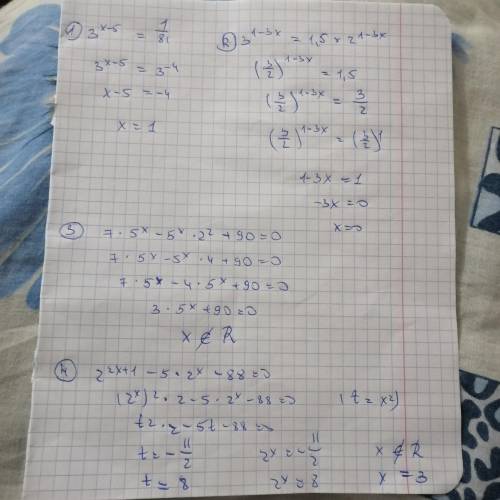 1) 3^(x-5) = 1/81
3^(x-5) = 3^(-4)
x-5 = -4
x = 1
2) 3^(1-3x) = 1,5 × 2^(1-3x)
(3/2)^(1-3x) = 1,5
(3/2)^(1-3x) = 3/2
(3/2)^(1-3x) = (3/2)^1
1-3x = 1
-3x = 0
x=0
3) 7·5^x - 5^x · 2² + 90 = 0
7·5^x - 5^x · 4 + 90 = 0
7·5^x - 4·5^x + 90 = 0
3·5^x + 90 = 0
x ∉ R
4) 2^(2x+1) - 5·2^x - 88 = 0
(2^x)² · 2 - 5·2^x - 88 = 0 (t = x²)
t² · 2 - 5t - 88 = 0
t = -11/2 2^x = -11/2 x ∉ R
t = 8 2^x = 8 x = 3